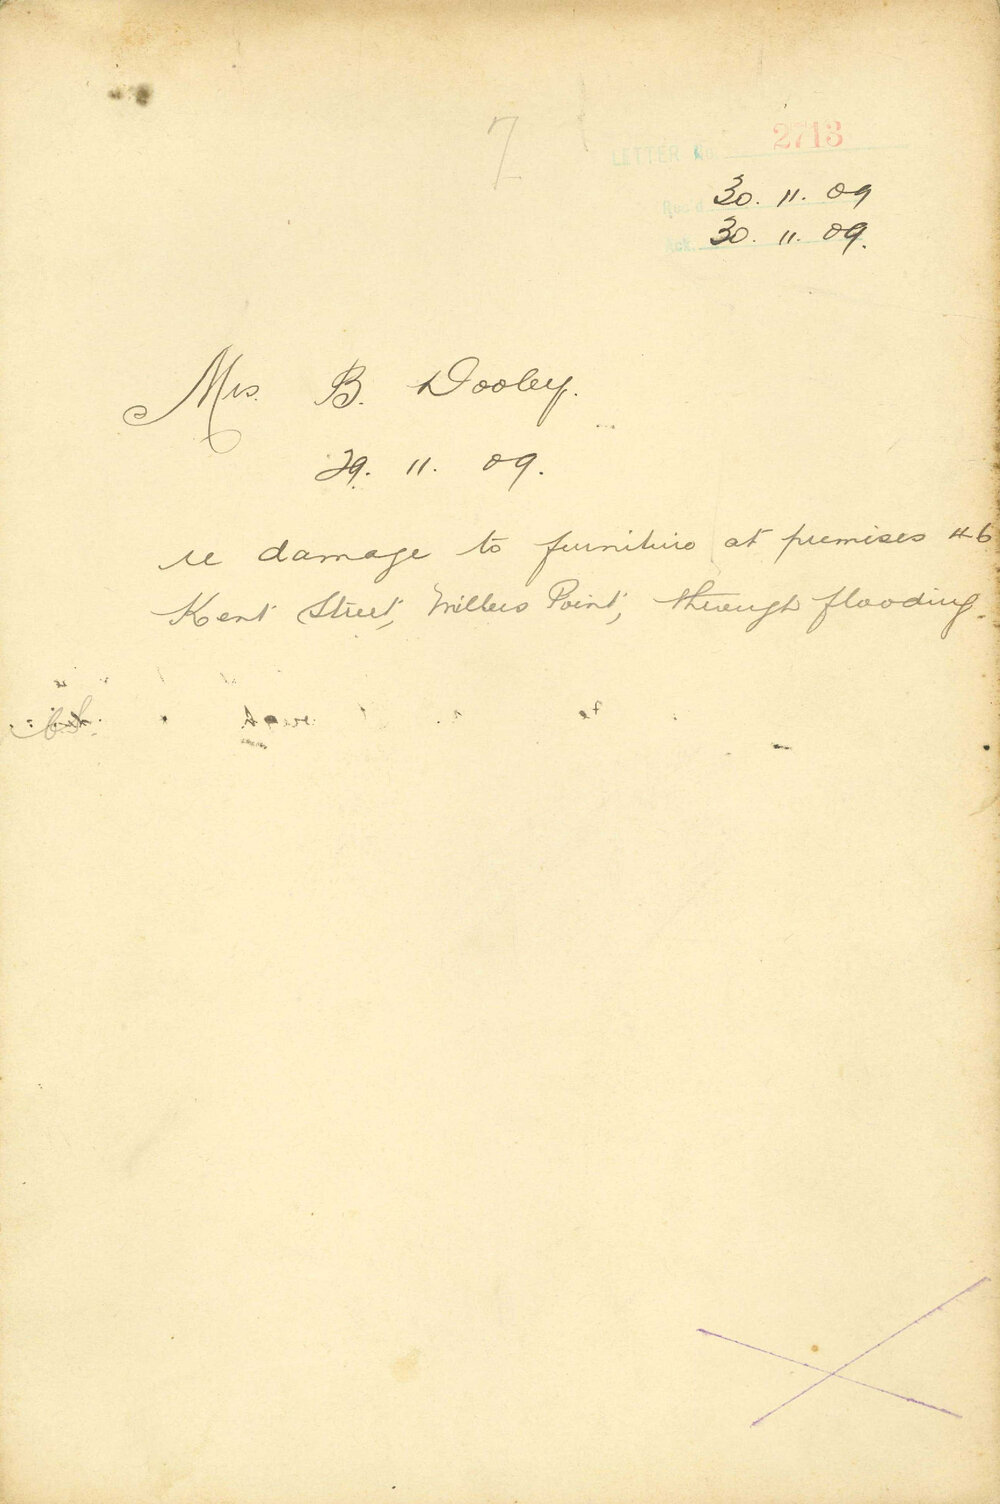 7
LETTER No. 2713
Rec'd. 30. 11. 09
Ack. 30. 11. 09.
Mrs. B. Dooley.
29. 11. 09.
re damage to furniture at premises 46
Kent Street, Millers Point, through flooding.